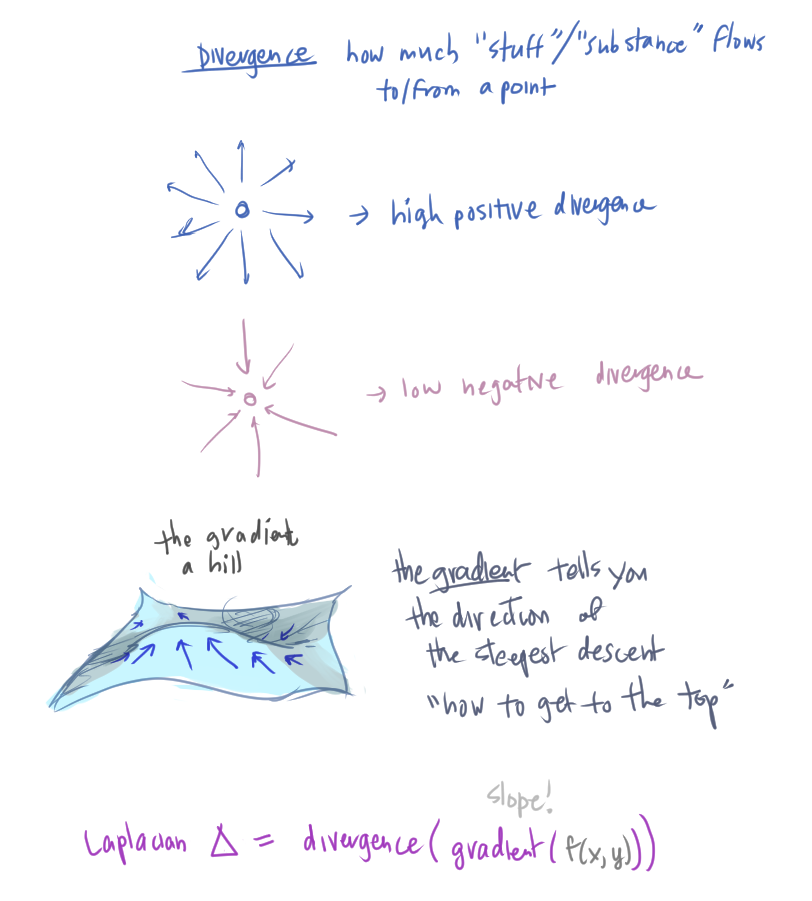 Divergence how much "stuff"/"substance" flows
to/from a point
→ high positive divergence
→ low negative divergence
the gradient
a hill
the gradient tells you
the direction of
the steepest descent
"how to get to the top"
slope!
Laplacian Δ = divergence(gradient(f(x,y)))